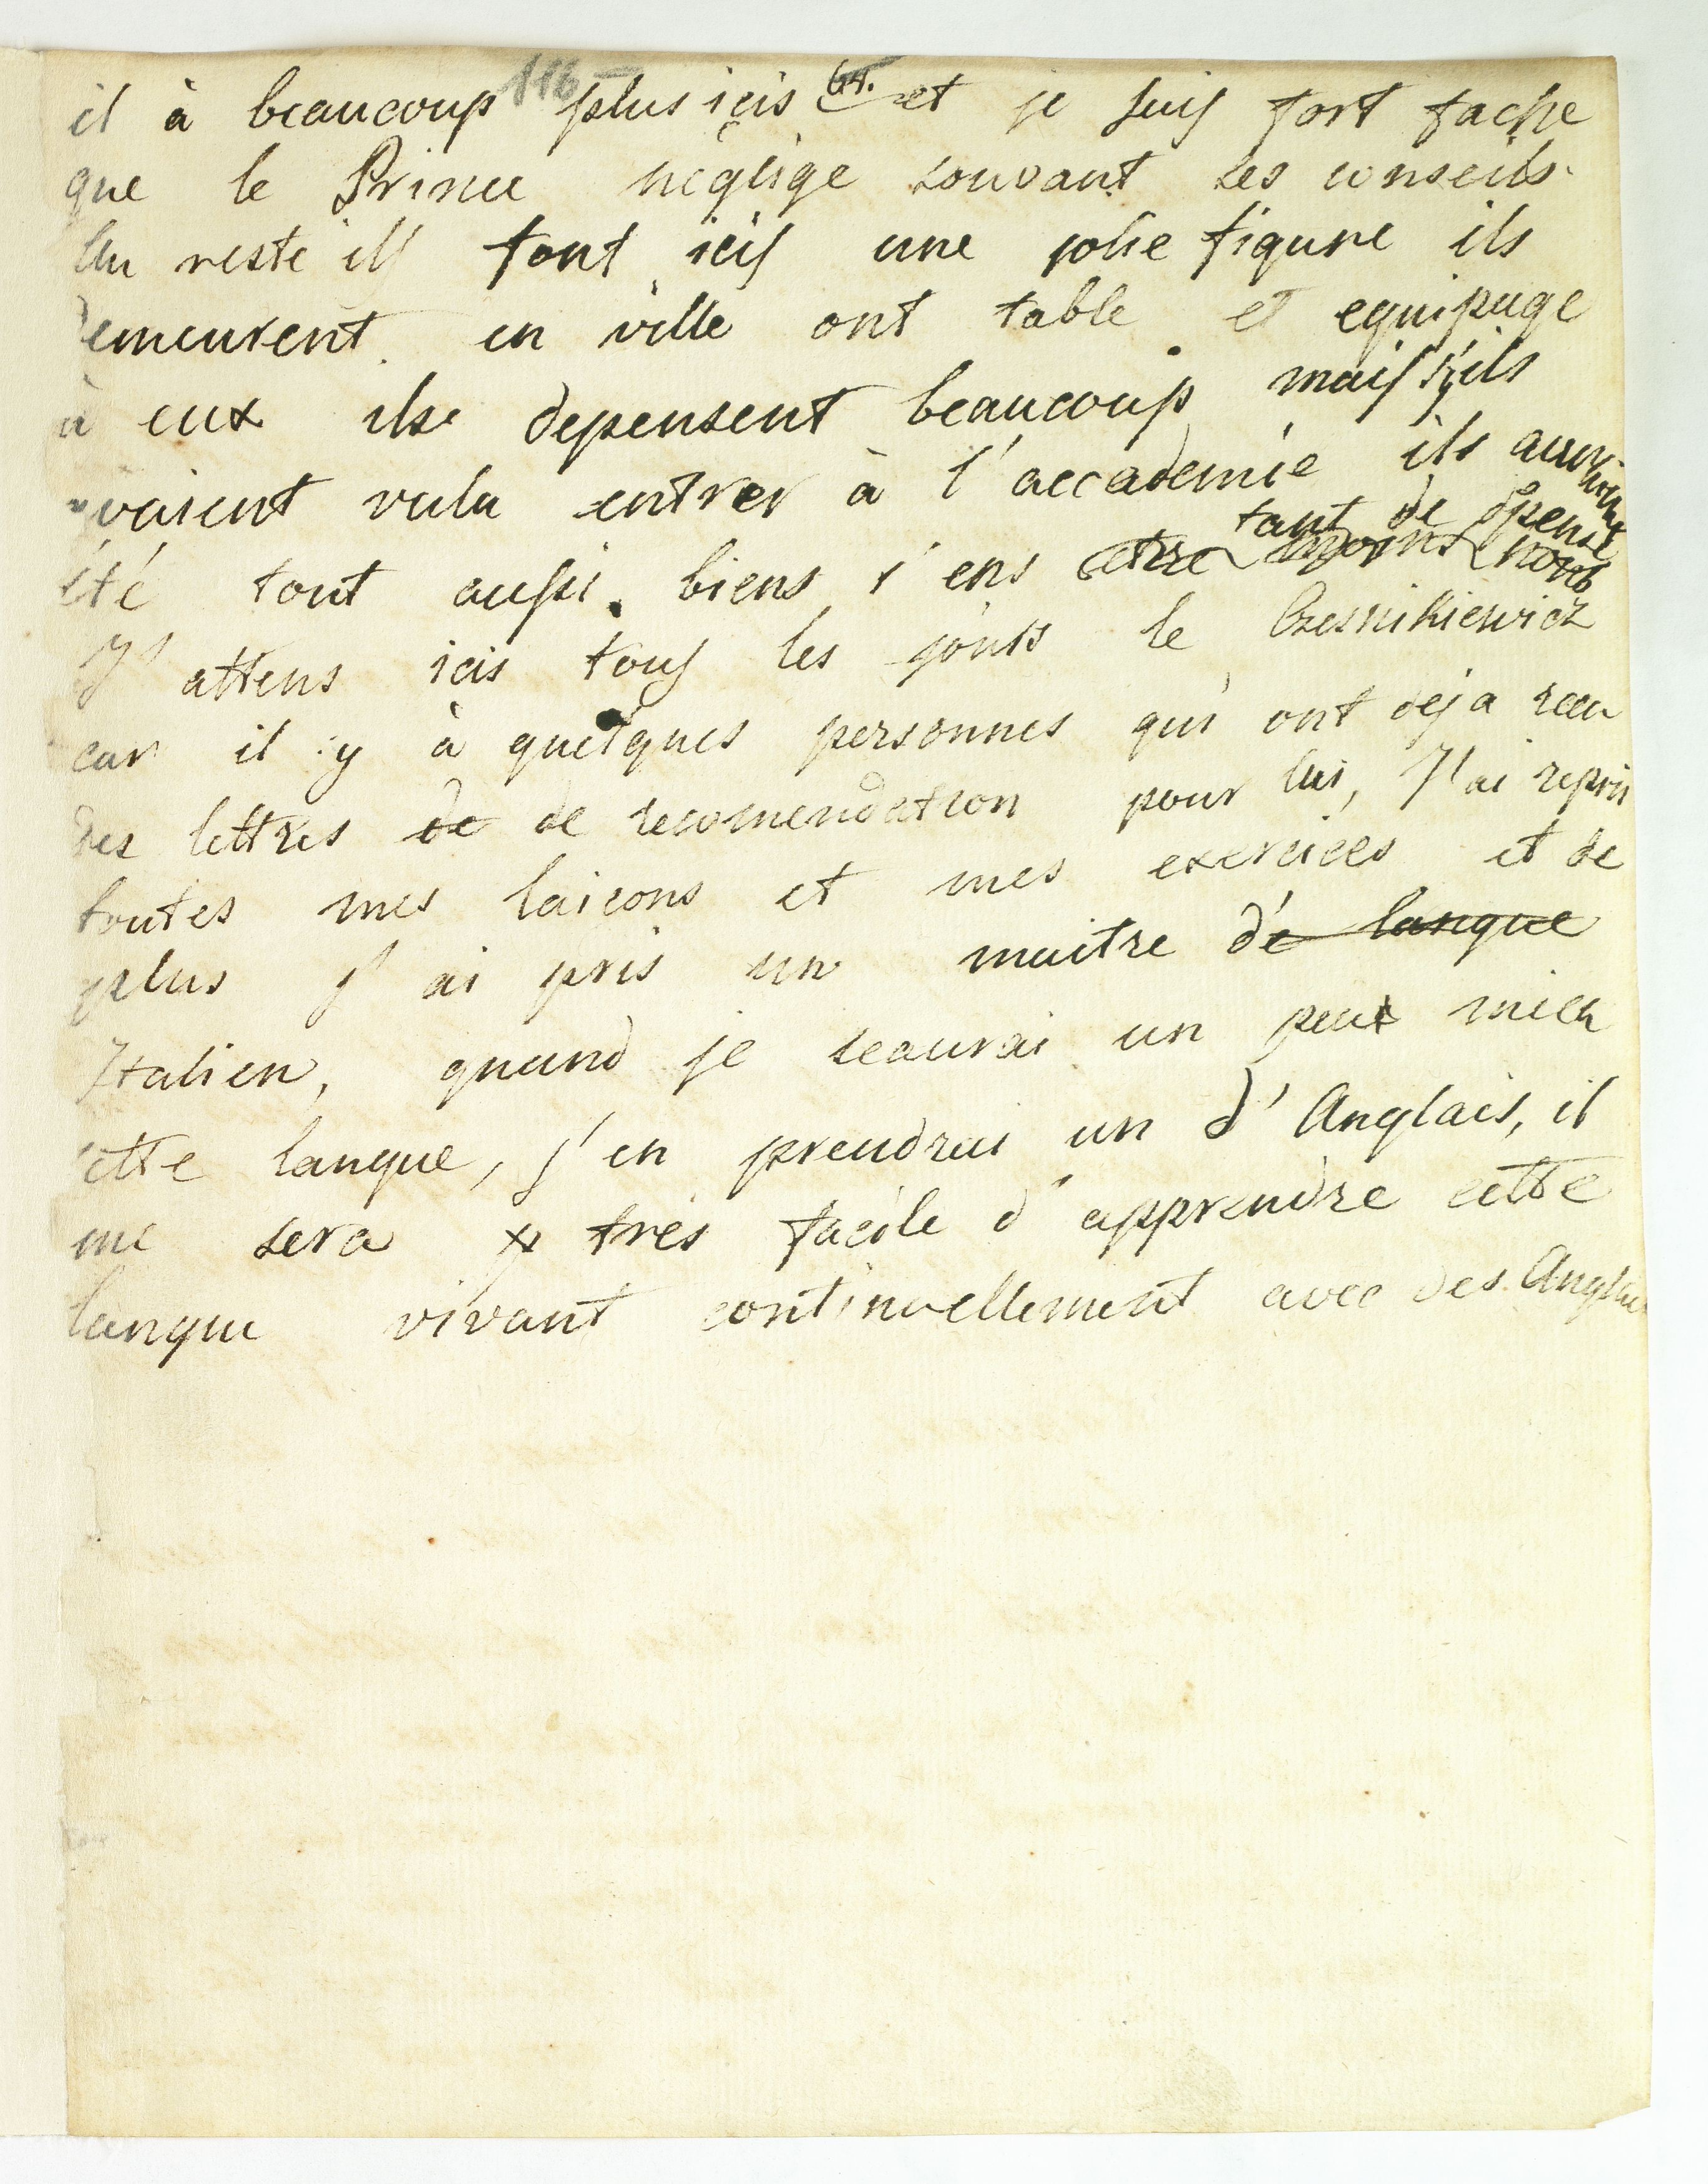 116
64.
il à beaucoup plus icis et je suis fort fache
que le Prince neglige souvant ses conseils.
Au reste ils font icis une jolie figure ils
demeurent en ville ont table et equipage
à eux ils depensent beaucoup mais s'ils
avaient vulu entrer à l'accademie ils auroient
tant de dpense
été tout aussi biens s'ens etre moins
J'attens icis tous les jours le Czesnikiewicz
car il y à quelques personnes qui ont deja recu
des lettres de de recomendation pour lui, J'ai repris
toutes mes laicons et mes exercices et de
plus j'ai pris un maitre dé langue
Italien, quand je scaurai un peut mieu
cette langue, j'en prendrai un d'Anglais, il
me sera trés facile d'apprendre cette
langue vivant continuellement avec des Anglais